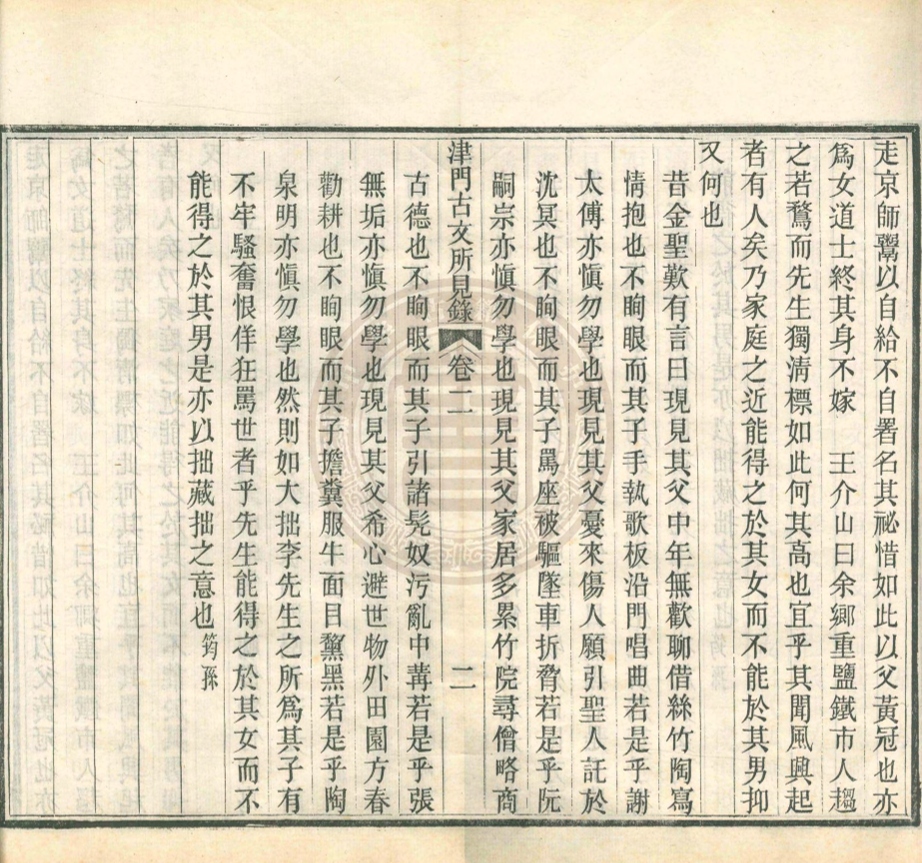 走京師鬻以自給不自署名其祕惜如此以父黃冠也亦
爲女道士終其身不嫁　王介山曰余鄉重鹽鐵市人趨
之若鶩而先生獨淸標如此何其高也宜乎其聞風興起
者有人矣乃家庭之近能得之於其女而不能於其男抑
又何也
昔金聖歎有言曰現見其父中年無歡聊借絲竹陶寫
情抱也不眴眼而其子手執歌板沿門唱曲若是乎謝
太傅亦愼勿學也現見其父憂來傷人願引聖人託於
沈冥也不眴眼而其子罵座被驅墜車折脅若是乎阮
嗣宗亦愼勿學也現見其父家居多累竹院尋僧略商
津門古文所見錄　卷二　二
古德也不眴眼而其子引諸髡奴污亂中冓若是乎張
無垢亦愼勿學也現見其父希心避世物外田園方春
勸耕也不眴眼而其子擔糞服牛面目黧黑若是乎陶
泉明亦愼勿學也然則如大拙李先生之所爲其子有
不牢騷奮恨佯狂罵世者乎先生能得之於其女而不
能得之於其男是亦以拙藏拙之意也　筠孫